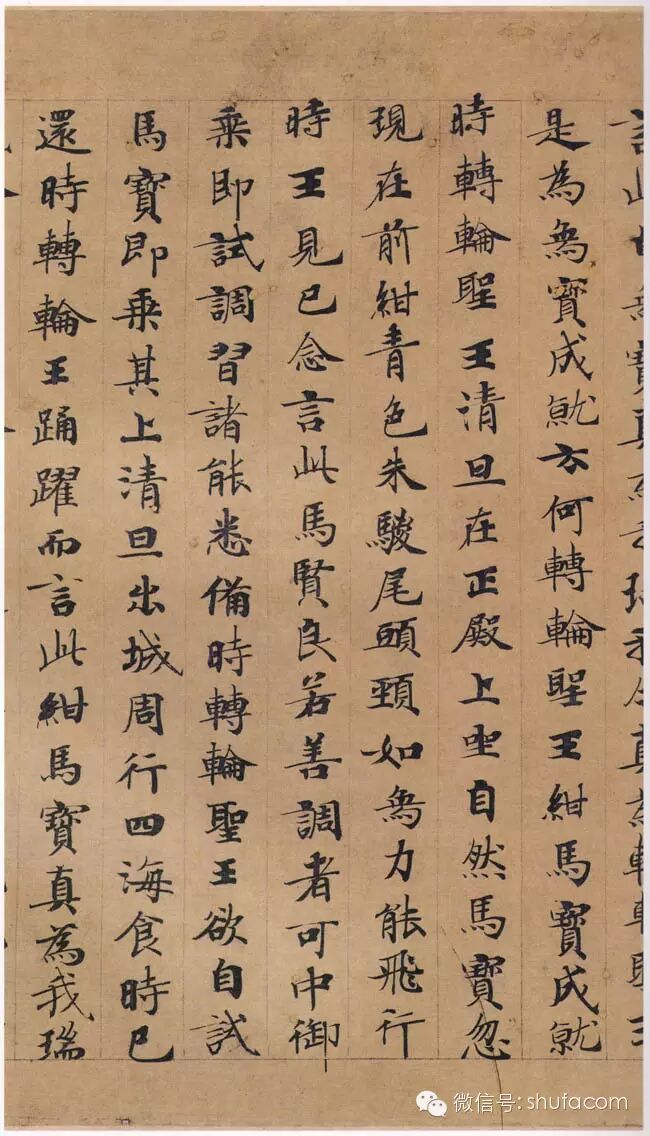 言此為寶真為瑞我今真為轉輪聖王
是為象寶成就云何轉輪聖王紺馬寶成就
時轉輪聖王清旦在正殿上坐自然馬寶忽
現在前紺青色朱駿尾頭頸如象力能飛行
時王見已念言此馬賢良若善調者可中御
乘即試調習諸能悉備時轉輪聖王欲自試
馬寶即乘其上清旦出城周行四海食時已
還時轉輪王踊躍而言此紺馬寶真為我瑞
微信号: shufacom